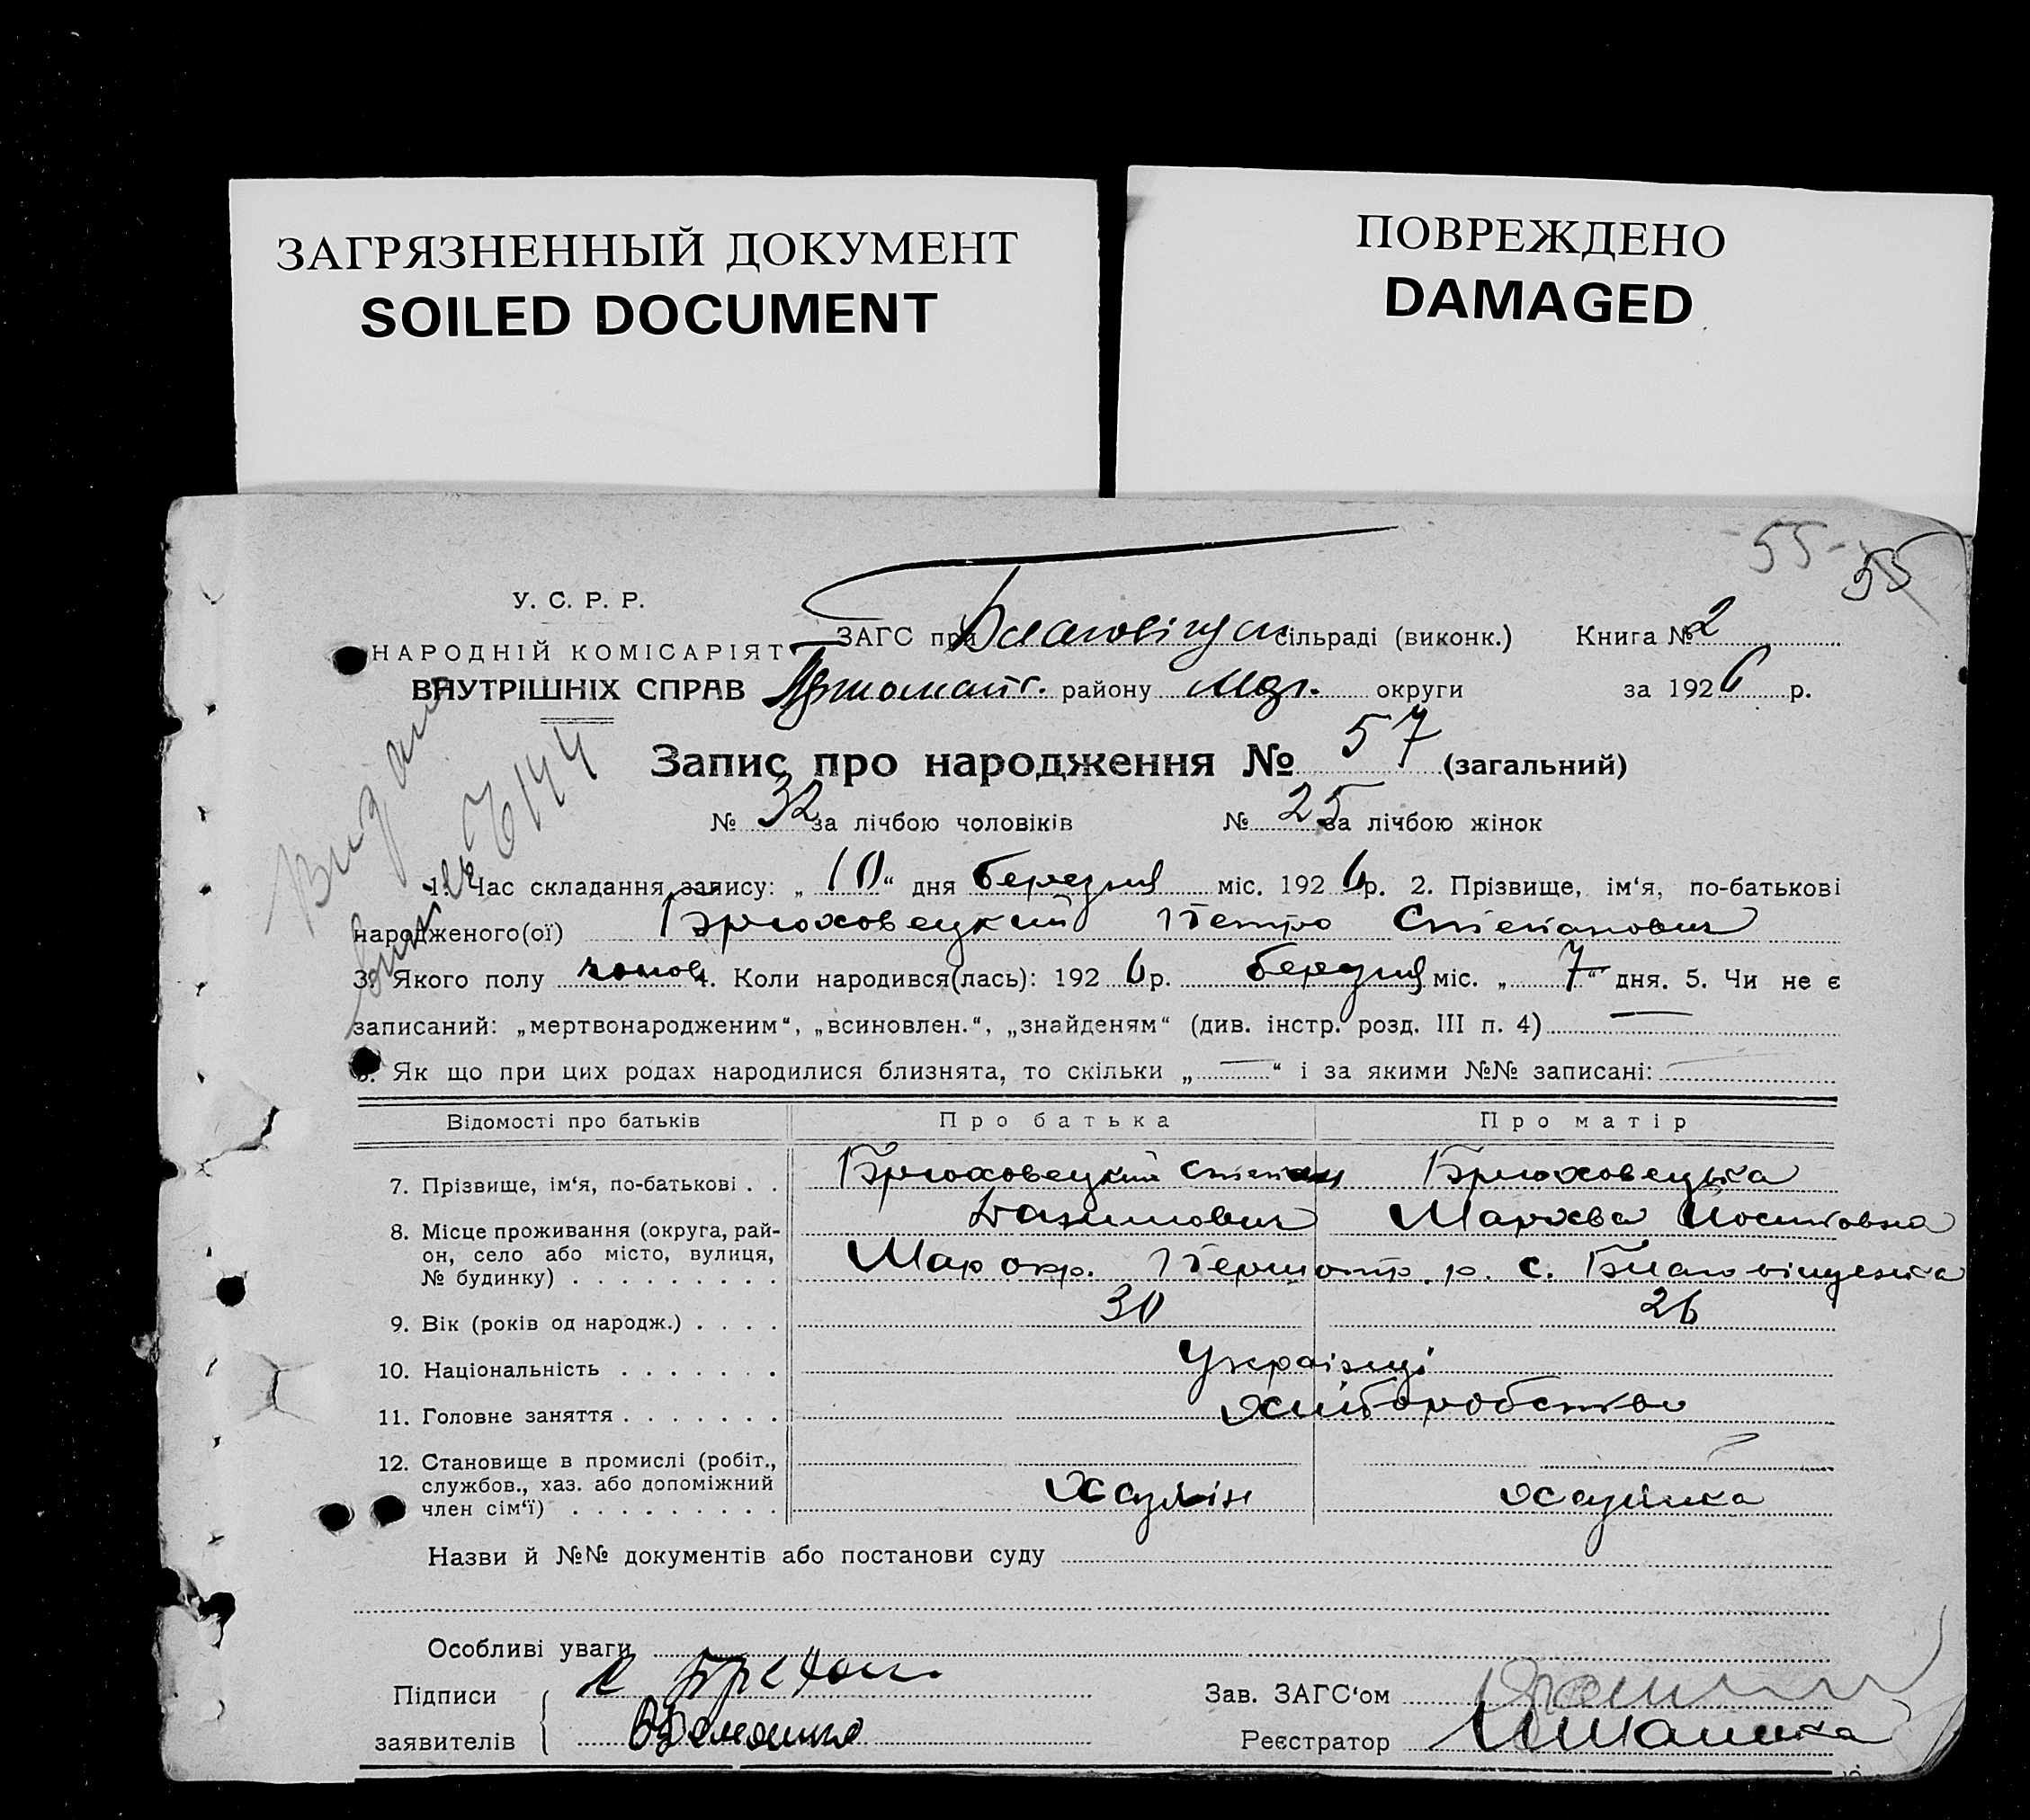 ЗАГРЯЗНЕННЫЙ ДОКУМЕНТ
SOILED DOCUMENT
ПОВРЕЖДЕНО
DAMAGED
55 55
У. С. Р. Р.
НАРОДНІЙ КОМІСАРІЯТ
ВНУТРІШНІХ СПРАВ
ЗАГС при сільраді (виконк.) Книга № 2
району округи за 1926 р.
Запис про народження № 57 (загальний)
№ 32 за лічбою чоловіків № 25 за лічбою жінок
1. Час складання запису: „ 10 “ дня березня міс. 1926 р. 2. Прізвище, ім‘я, по-батькові
народженого(ої) Брюховецкий Петро Степанович
3. Якого полу чолов 4. Коли народився(лась): 1926 р. березня міс. „ 7 “ дня. 5. Чи не є
записаний: „мертвонародженим“, „всиновлен.“, „знайденям“ (див. інстр. розд. III п. 4) —
6. Як що при цих родах народилися близнята, то скільки „ — “ і за якими №№ записані: —
Відомості про батьків Про батька Про матір
7. Прізвище, ім‘я, по-батькові . . Брюховецкий Степан Брюховецька
8. Місце проживання (округа, рай-
он, село або місто, вулиця,
№ будинку) . . . . . . . . . Мар окр. р. с.
9. Вік (років од народж.) . . . . 30 26
10. Національність . . . . . . . Українці
11. Головне заняття . . . . . . . хліборобство
12. Становище в промислі (робіт.,
службов., хаз. або допоміжний
член сім‘ї) . . . . . . . . . хазяїн хазяйка
Назви й №№ документів або постанови суду
Особливі уваги
Підписи
заявителів
Зав. ЗАГС‘ом
Реєстратор